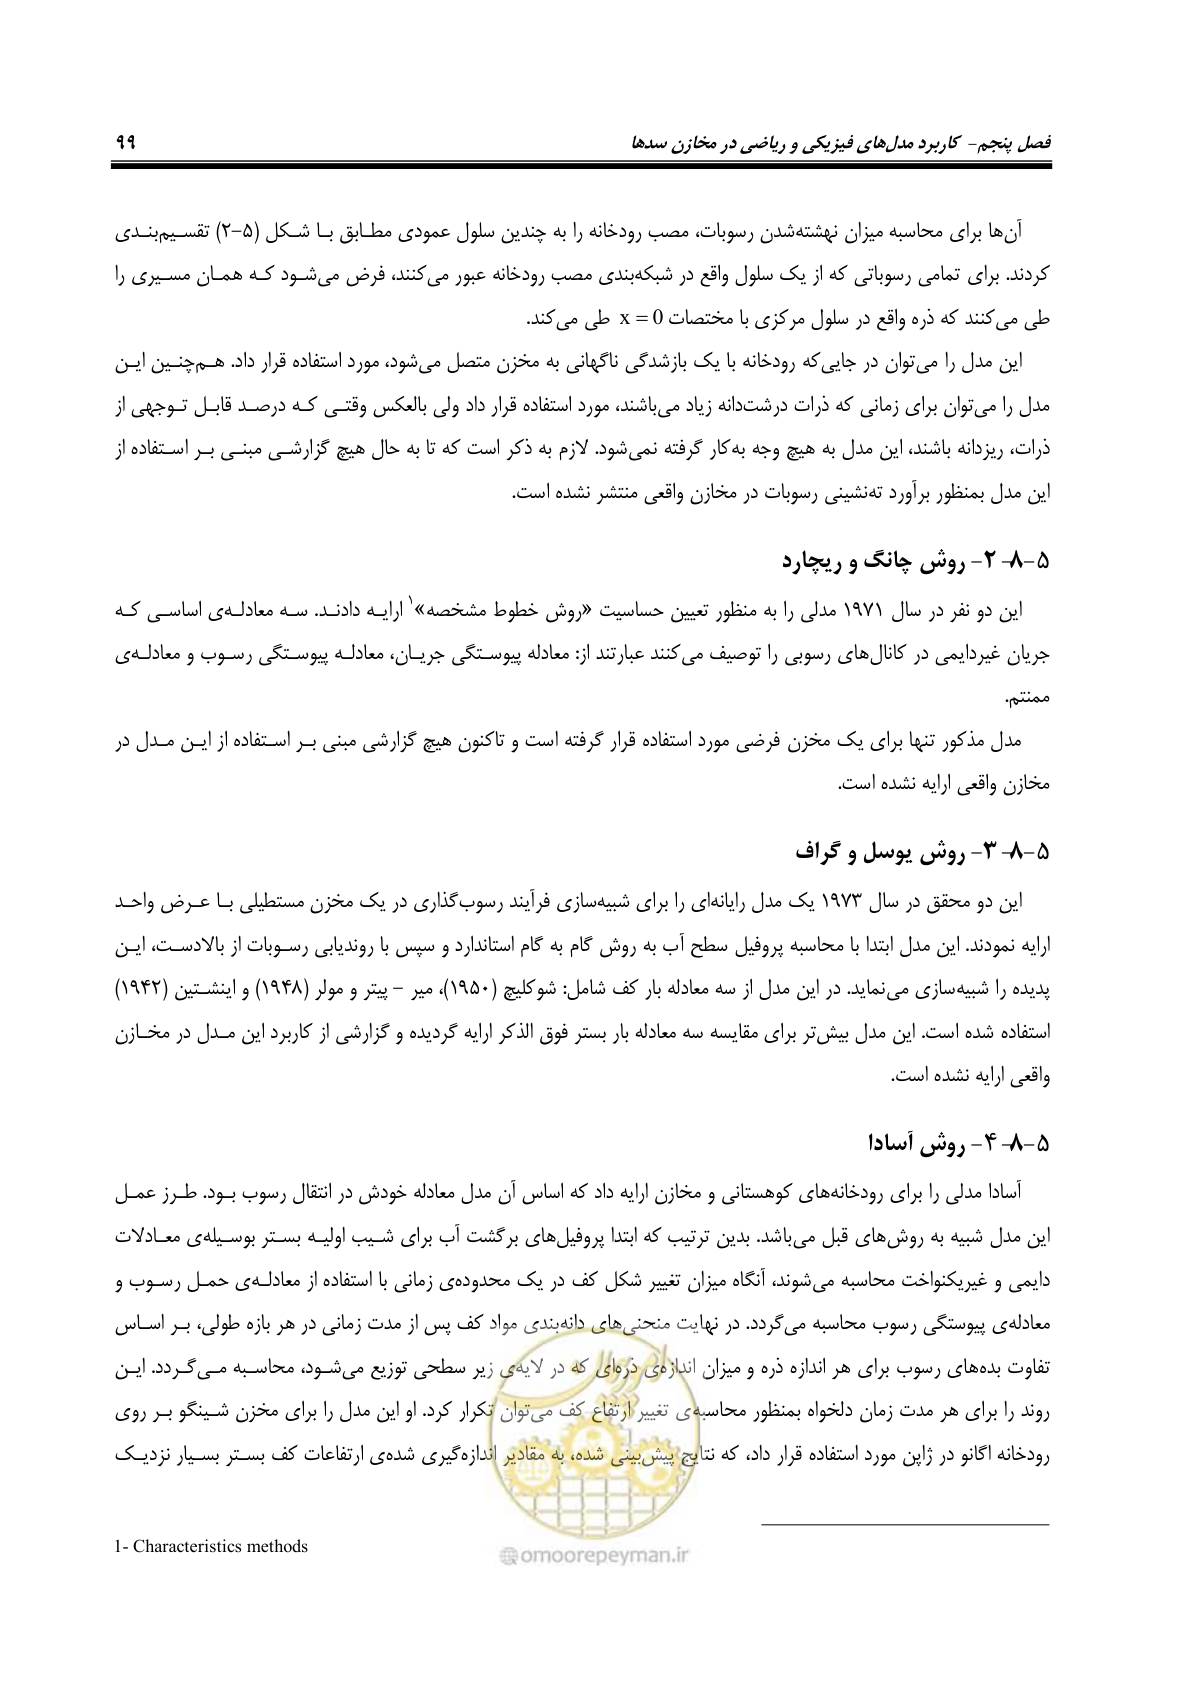 فصل پنجم- کاربرد مدل‌های فیزیکی و ریاضی در مخازن سدها ۹۹
آن‌ها برای محاسبه میزان نهشته‌شدن رسوبات، مصب رودخانه را به چندین سلول عمودی مطابق با شکل (۵-۲) تقسیم‌بندی
کردند. برای تمامی رسوباتی که از یک سلول واقع در شبکه‌بندی مصب رودخانه عبور می‌کنند، فرض می‌شود که همان مسیری را
طی می‌کنند که ذره واقع در سلول مرکزی با مختصات x = 0 طی می‌کند.
این مدل را می‌توان در جایی‌که رودخانه با یک بازشدگی ناگهانی به مخزن متصل می‌شود، مورد استفاده قرار داد. هم‌چنین این
مدل را می‌توان برای زمانی که ذرات درشت‌دانه زیاد می‌باشند، مورد استفاده قرار داد ولی بالعکس وقتی که درصد قابل توجهی از
ذرات، ریزدانه باشند، این مدل به هیچ وجه به‌کار گرفته نمی‌شود. لازم به ذکر است که تا به حال هیچ گزارشی مبنی بر استفاده از
این مدل بمنظور برآورد ته‌نشینی رسوبات در مخازن واقعی منتشر نشده است.
۵-۸-۲- روش چانگ و ریچارد
این دو نفر در سال ۱۹۷۱ مدلی را به منظور تعیین حساسیت «روش خطوط مشخصه»۱ ارایه دادند. سه معادله‌ی اساسی که
جریان غیردایمی در کانال‌های رسوبی را توصیف می‌کنند عبارتند از: معادله پیوستگی جریان، معادله پیوستگی رسوب و معادله‌ی
ممنتم.
مدل مذکور تنها برای یک مخزن فرضی مورد استفاده قرار گرفته است و تاکنون هیچ گزارشی مبنی بر استفاده از این مدل در
مخازن واقعی ارایه نشده است.
۵-۸-۳- روش یوسل و گراف
این دو محقق در سال ۱۹۷۳ یک مدل رایانه‌ای را برای شبیه‌سازی فرآیند رسوب‌گذاری در یک مخزن مستطیلی با عرض واحد
ارایه نمودند. این مدل ابتدا با محاسبه پروفیل سطح آب به روش گام به گام استاندارد و سپس با روندیابی رسوبات از بالادست، این
پدیده را شبیه‌سازی می‌نماید. در این مدل از سه معادله بار کف شامل: شوکلیچ (۱۹۵۰)، میر – پیتر و مولر (۱۹۴۸) و اینشتین (۱۹۴۲)
استفاده شده است. این مدل بیش‌تر برای مقایسه سه معادله بار بستر فوق الذکر ارایه گردیده و گزارشی از کاربرد این مدل در مخازن
واقعی ارایه نشده است.
۵-۸-۴- روش آسادا
آسادا مدلی را برای رودخانه‌های کوهستانی و مخازن ارایه داد که اساس آن مدل معادله خودش در انتقال رسوب بود. طرز عمل
این مدل شبیه به روش‌های قبل می‌باشد. بدین ترتیب که ابتدا پروفیل‌های برگشت آب برای شیب اولیه بستر بوسیله‌ی معادلات
دایمی و غیریکنواخت محاسبه می‌شوند، آنگاه میزان تغییر شکل کف در یک محدوده‌ی زمانی با استفاده از معادله‌ی حمل رسوب و
معادله‌ی پیوستگی رسوب محاسبه می‌گردد. در نهایت منحنی‌های دانه‌بندی مواد کف پس از مدت زمانی در هر بازه طولی، بر اساس
تفاوت بده‌های رسوب برای هر اندازه ذره و میزان اندازه‌ی ذره‌ای که در لایه‌ی زیر سطحی توزیع می‌شود، محاسبه می‌گردد. این
روند را برای هر مدت زمان دلخواه بمنظور محاسبه‌ی تغییر ارتفاع کف می‌توان تکرار کرد. او این مدل را برای مخزن شینگو بر روی
رودخانه اگانو در ژاپن مورد استفاده قرار داد، که نتایج پیش‌بینی شده، به مقادیر اندازه‌گیری شده‌ی ارتفاعات کف بستر بسیار نزدیک
1- Characteristics methods
@omoorepeyman.ir